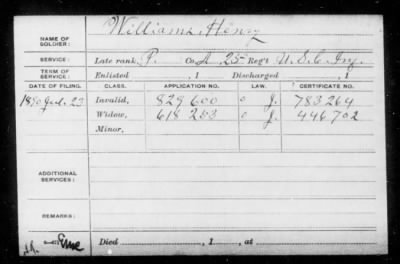 NAME OF SOLDIER: Williams, Henry
SERVICE: Late rank, P. Co. A 25 Reg't U.S.C. Inf.
TERM OF SERVICE: Enlisted , 1 Discharged , 1
DATE OF FILING. CLASS. APPLICATION NO. LAW. CERTIFICATE NO.
1890 Jul. 23 Invalid, 829600 J. 783264
Widow, 618253 J. 446702
Minor,
ADDITIONAL SERVICES:
REMARKS:
Died , 1 , at